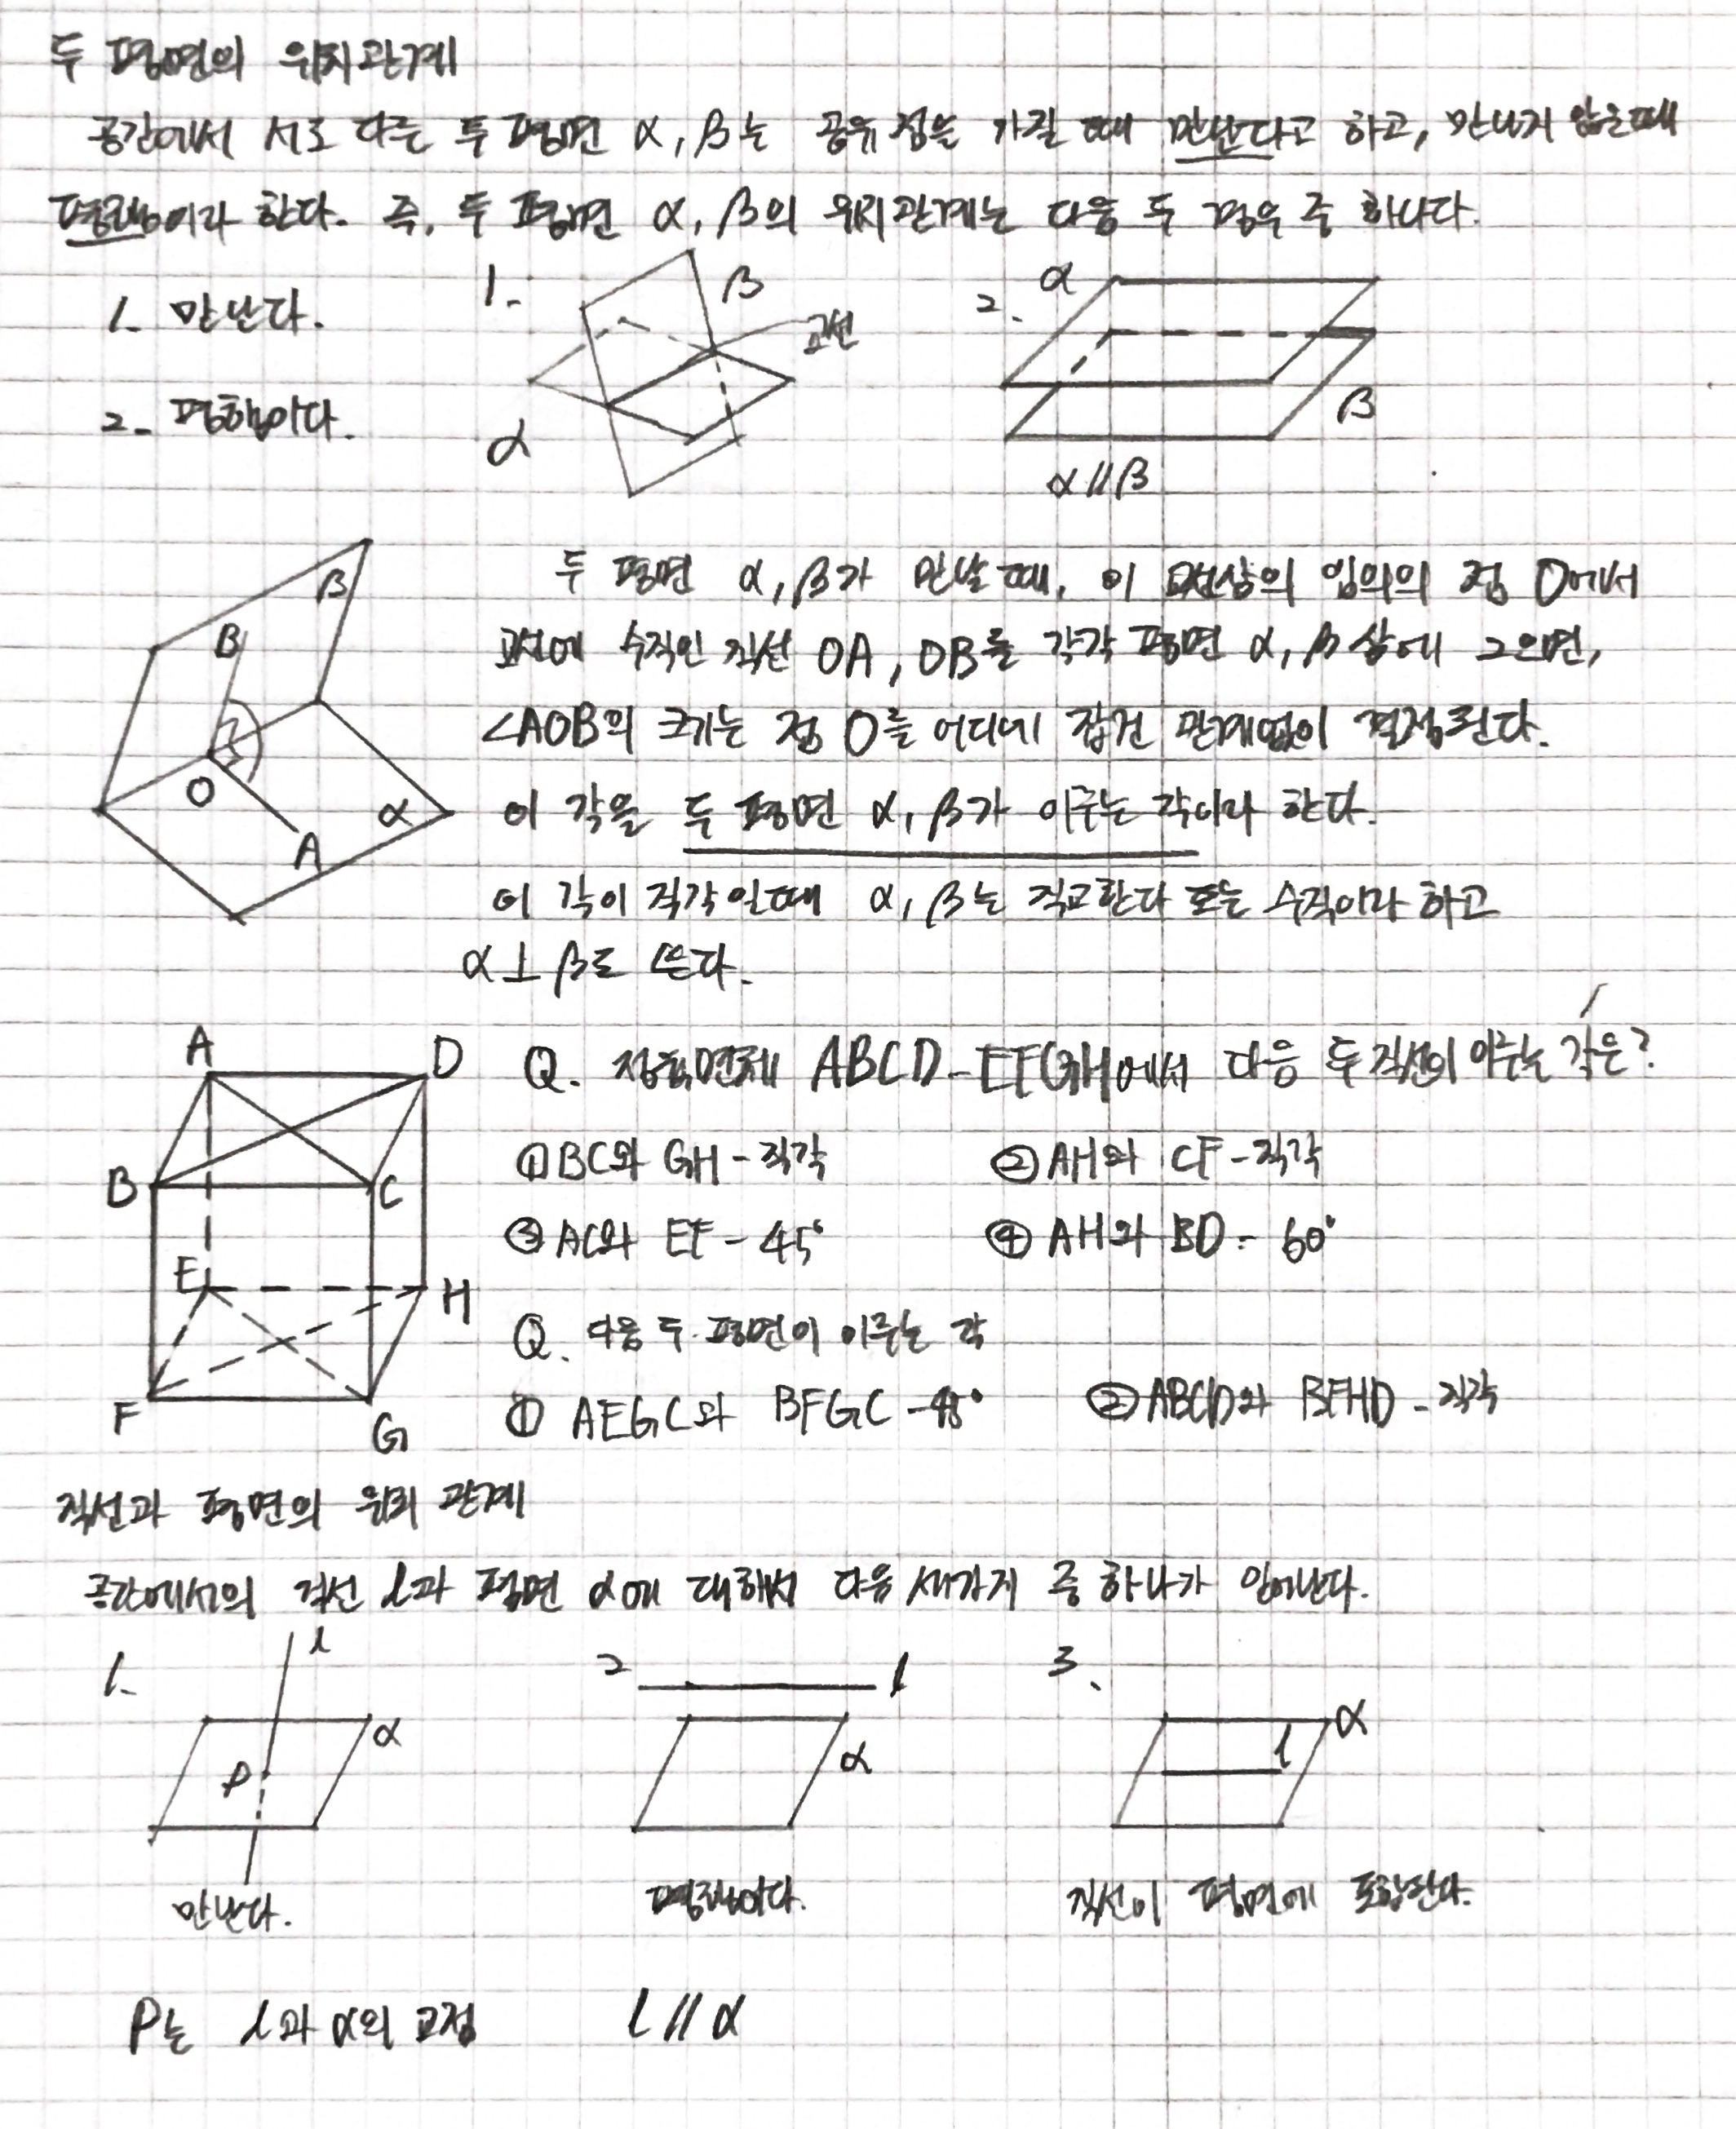 두 평면의 위치관계
공간에서 서로 다른 두 평면 α, β는 공유점을 가질 때 만난다고 하고, 만나지 않을때
평행이라 한다. 즉, 두 평면 α, β의 위치관계는 다음 두 경우 중 하나다.
1. 만난다.
2. 평행이다.
1.
β
교선
α
2.
α
β
α//β
β
B
O
A
α
두 평면 α, β가 만날 때, 이 교선상의 임의의 점 O에서
교선에 수직인 직선 OA, OB를 각각 평면 α, β상에 그으면,
∠AOB의 크기는 점 O를 어디에 잡건 관계없이 결정된다.
이 각을 두 평면 α, β가 이루는 각이라 한다.
이 각이 직각일때 α, β는 직교한다 또는 수직이라 하고
α⊥β로 쓴다.
A
D
B
C
E
H
F
G
Q. 정육면체 ABCD-EFGH에서 다음 두 직선이 이루는 각은?
① BC와 GH - 직각
② AH와 CF - 직각
③ AC와 EF - 45°
④ AH와 BD - 60°
Q. 다음 두 평면이 이루는 각
① AEGC와 BFGC - 45°
② ABCD와 BFHD - 직각
직선과 평면의 위치 관계
공간에서의 직선 l과 평면 α에 대해서 다음 세가지 중 하나가 일어난다.
1.
l
α
P
만난다.
2
l
α
평행이다.
3.
α
l
직선이 평면에 포함된다.
P는 l과 α의 교점
l//α